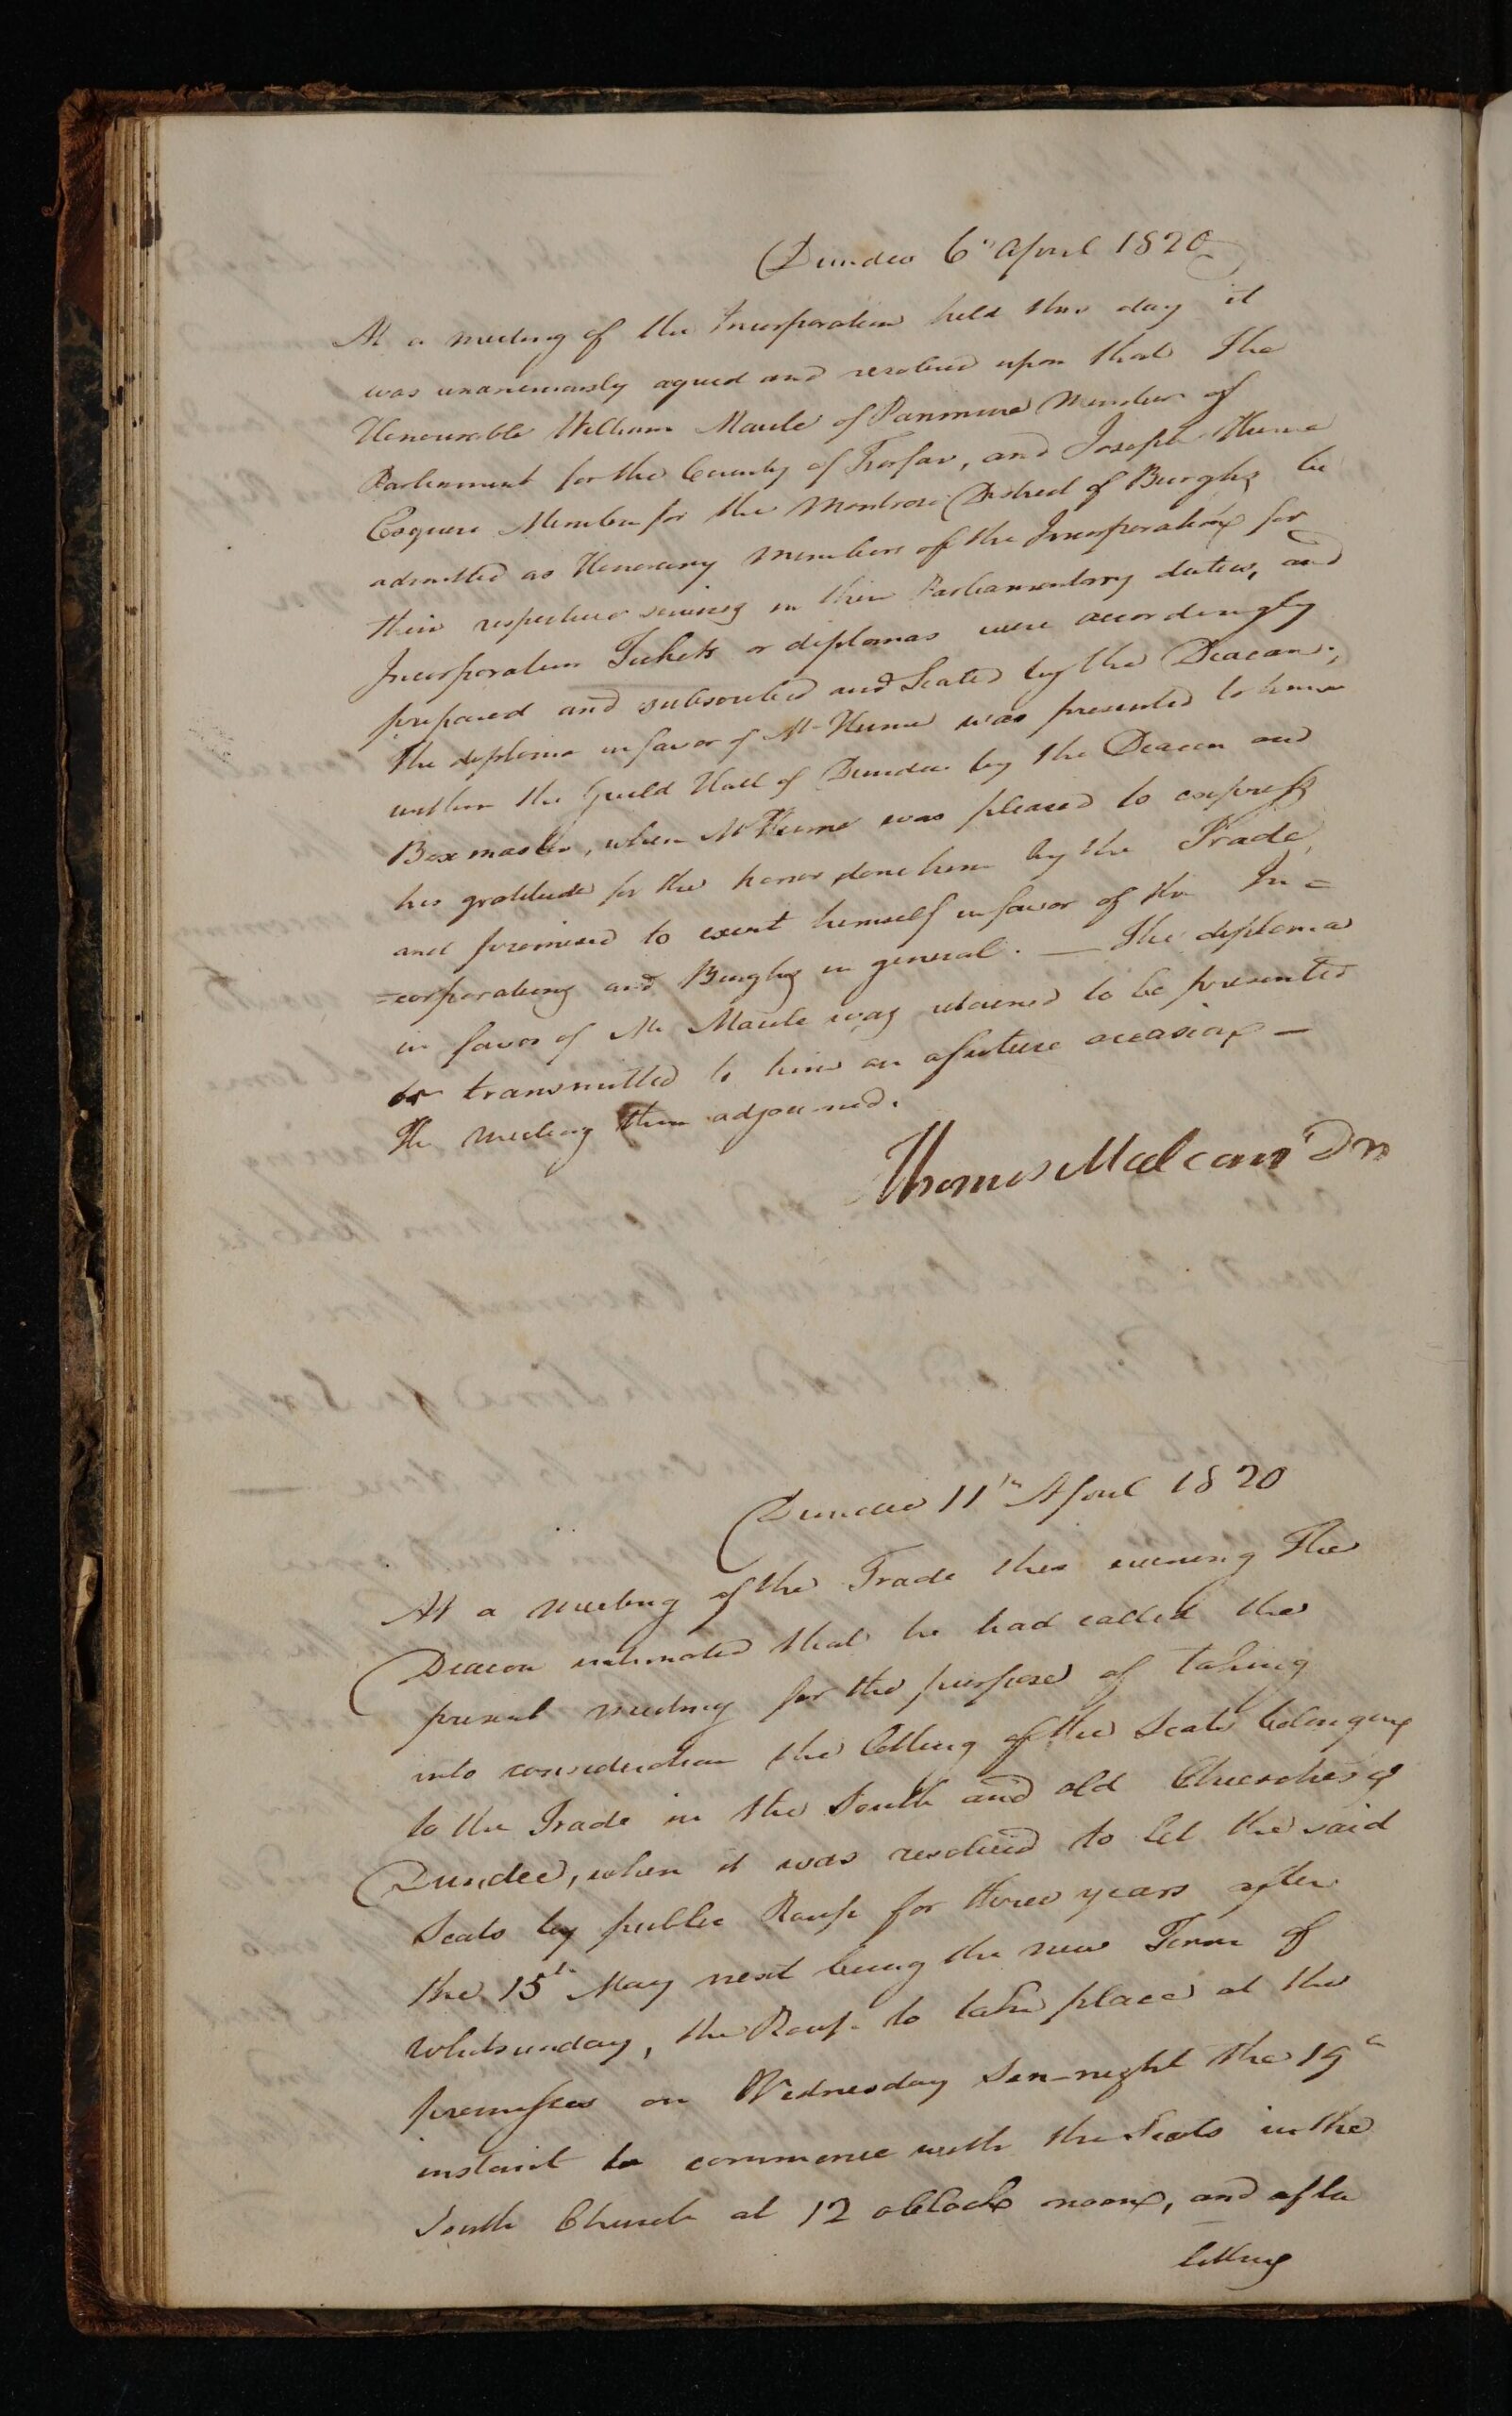 Dundee 6th April 1820
At a meeting of the Incorporation held this day it
was unanimously agreed and resolved upon that The
Honourable William Maule of Panmure Member of
Parliament for the County of Forfar, and Joseph Hume
Esquire Member for the Montrose District of Burghs be
admitted as Honorary members of the Incorporation for
their respective services in their Parliamentary duties, and
Incorporation Tickets or diplomas were accordingly
prepared and subscribed and Sealed by the Deacon;
The diploma in favor of Mr Hume was presented to him
within the Guild Hall of Dundee by the Deacon and
Boxmaster, when Mr Hume was pleased to express
his gratitude for the honor done him by the Trade,
and promised to exert himself in favor of the In=
=corporations and Burghs in general. — The diploma
in favor of Mr Maule was retained to be presented
or transmitted to him on a future occasion —
The meeting then adjourned.
Thomas Malcom Dn
Dundee 11th April 1820
At a meeting of the Trade this evening The
Deacon intimated that he had called the
present meeting for the purpose of taking
into consideration the letting of the Seats belonging
to the Trade in the South and old Churches of
Dundee, when it was resolved to let the said
Seats by public Roup for three years after
the 15th May next being the new Term of
Whitsunday, the Roup to take place at the
premises on Wednesday Sen-night the 19th
instant to commence with the Seats in the
South Church at 12 oClock noon, and after
letting